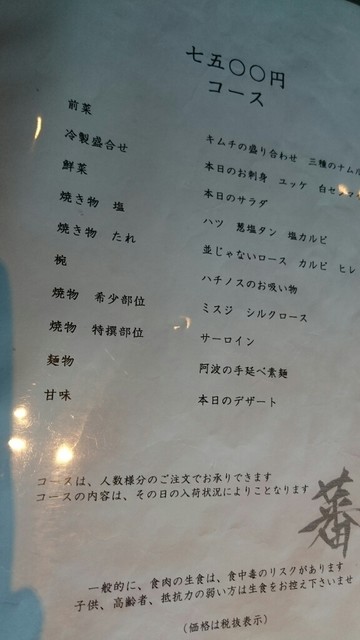 七五〇〇円
コース
前菜 キムチの盛り合わせ 三種のナムル
冷製盛合せ 本日のお刺身 ユッケ 白センマ
鮮菜 本日のサラダ
焼き物 塩 ハツ 葱塩タン 塩カルビ
焼き物 たれ 並じゃないロース カルビ ヒレ
椀 ハチノスのお吸い物
焼物 希少部位 ミスジ シルクロース
焼物 特撰部位 サーロイン
麺物 阿波の手延べ素麺
甘味 本日のデザート
コースは、人数様分のご注文でお承りできます
コースの内容は、その日の入荷状況によりことなります
蕃
一般的に、食肉の生食は、食中毒のリスクがあります
子供、高齢者、抵抗力の弱い方は生食をお控え下さいませ
(価格は税抜表示)